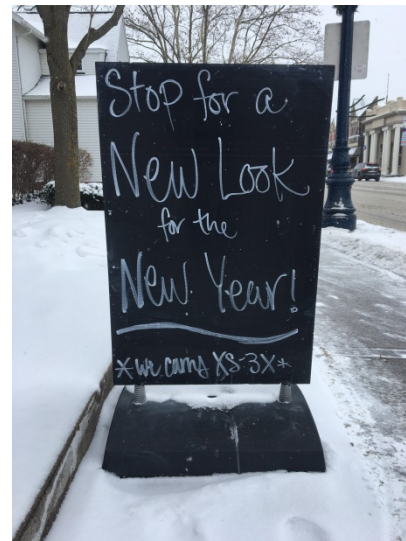 Stop for a
New Look
for the
New Year!
*we carry XS-3X*